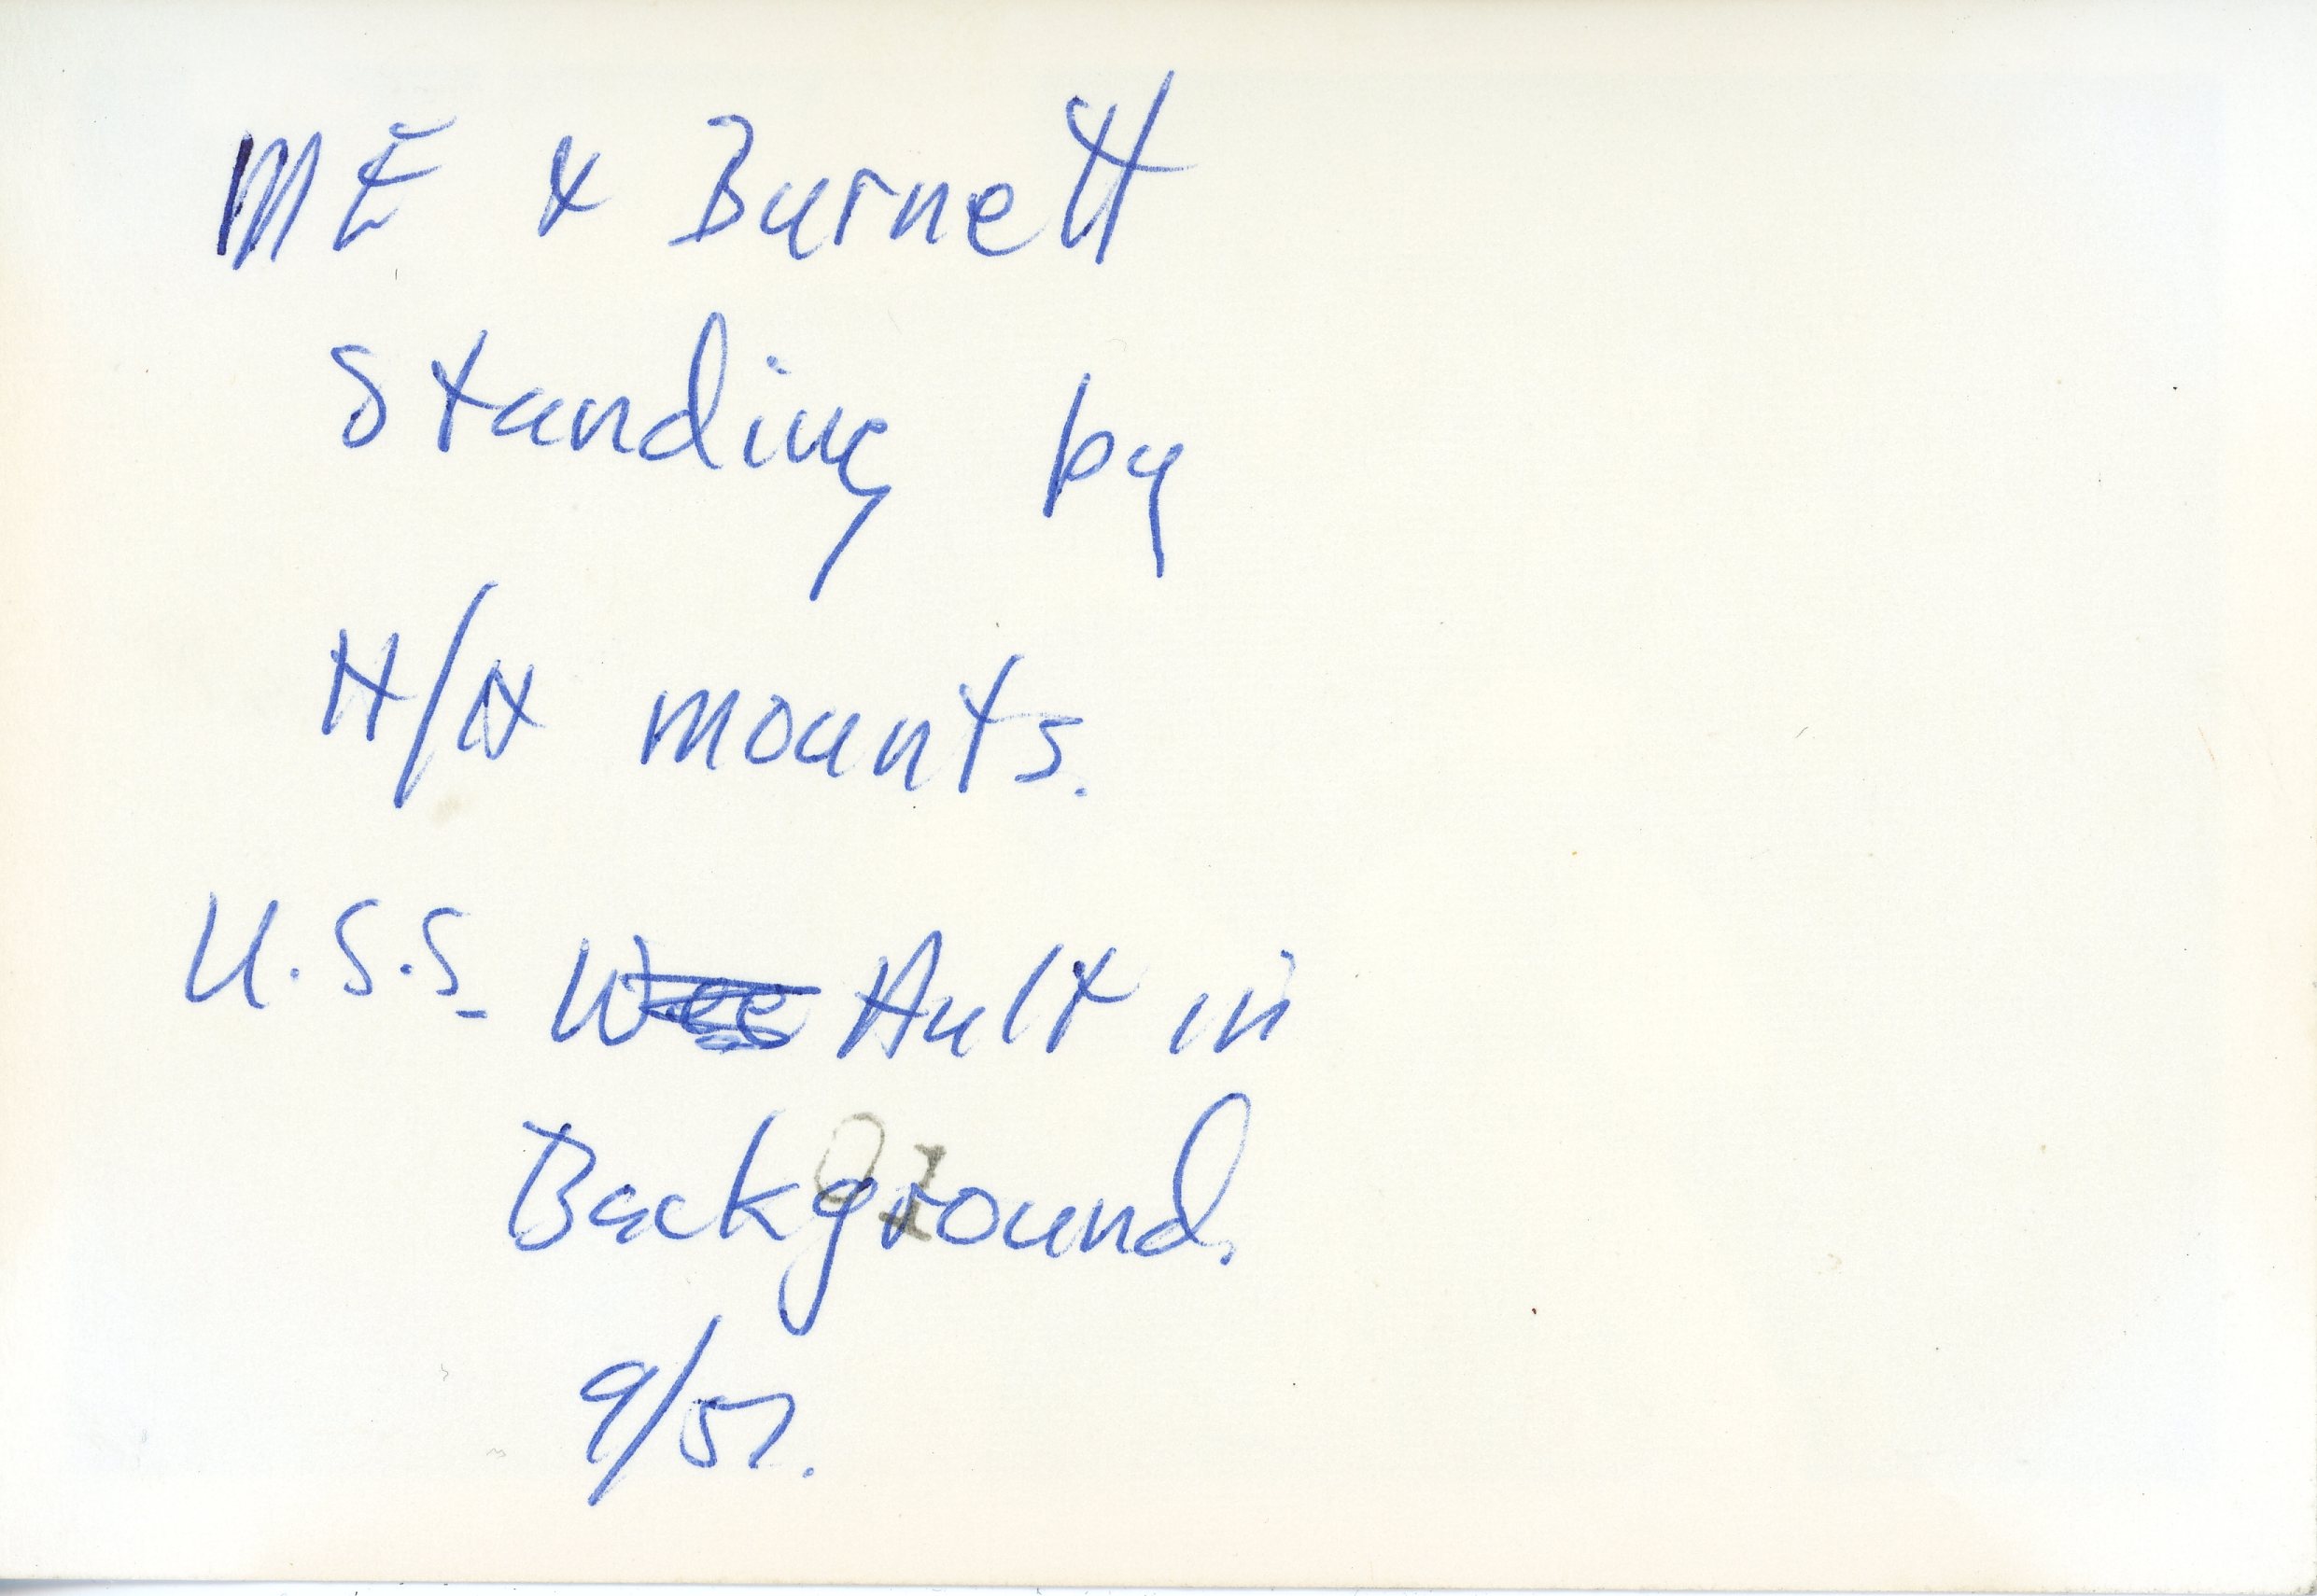 ME & Burnett
Standing by
H/H mounts.
U.S.S. Ault in
Background.
9/57.